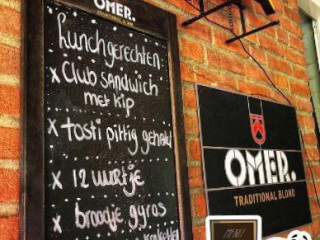 OMER.
Lunchgerechten:
x Club sandwich
met kip
x tosti pittig gehakt
x 12 uurtje
x broodje gyros
OMER.
TRADITIONAL BLOND
MENU